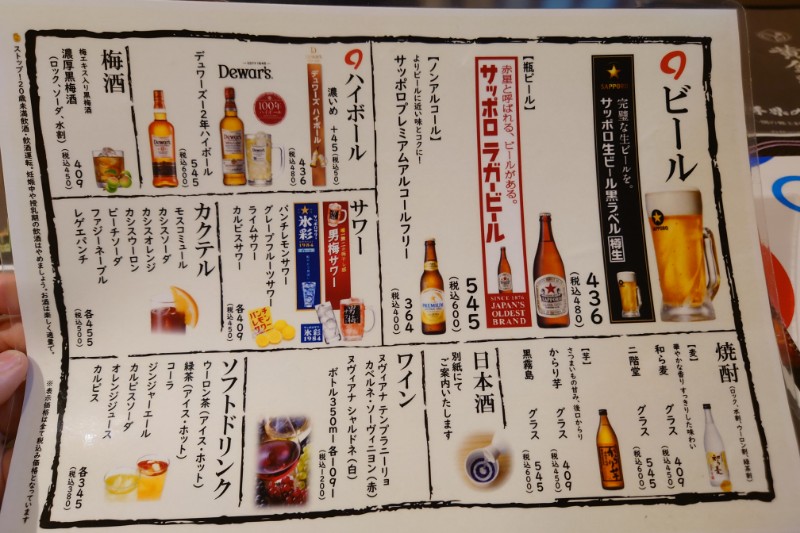 ビール
SAPPORO
完璧な生ビールを。
サッポロ生ビール黒ラベル 樽生
436
(税込480)
【瓶ビール】
赤星と呼ばれる、ビールがある。
サッポロ ラガービール
SINCE 1876
JAPAN'S
OLDEST
BRAND
545
(税込600)
【ノンアルコール】
よりビールに近い味とコクに!
サッポロプレミアムアルコールフリー
364
(税込400)
ハイボール
濃いめ +45(税込50)
デュワーズ ハイボール
436
(税込480)
Dewar's.
100年
デュワーズ12年ハイボール
545
(税込600)
梅酒
梅エキス入り黒梅酒
濃厚黒梅酒
(ロック、ソーダ、水割)
409
(税込450)
サワー
男梅サワー
氷彩
1984
パンチレモンサワー
グレープフルーツサワー
ライムサワー
カルピスサワー
各409
(税込450)
パンチ
レモン
サワー
氷彩
1984
男梅
カクテル
モスコミュール
カシスソーダ
カシスオレンジ
カシスウーロン
ピーチソーダ
ファジーネーブル
レゲエパンチ
各455
(税込500)
焼酎
(ロック、水割、ウーロン割、緑茶割)
【麦】
華やかな香り すっきりした味わい
和ら麦 グラス 409
(税込450)
二階堂 グラス 545
(税込600)
【芋】
さつまいもの甘み、後口からり
からり芋 グラス 409
(税込450)
黒霧島 グラス 545
(税込600)
日本酒
別紙にて
ご案内いたします
ワイン
ヌヴィアナ テンプラニーリョ
カベルネ・ソーヴィニヨン(赤)
ヌヴィアナ シャルドネ(白)
ボトル350ml 各1091
(税込1200)
ソフトドリンク
ウーロン茶(アイス・ホット)
緑茶(アイス・ホット)
コーラ
ジンジャーエール
カルピスソーダ
オレンジジュース
カルピス
各345
(税込380)
ストップ!20歳未満飲酒・飲酒運転。妊娠中や授乳期の飲酒はやめましょう。お酒は楽しく適量で。
※表示価格は全て税込み価格となっています